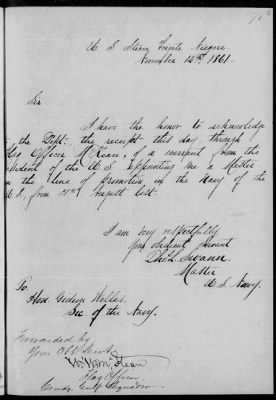 U S Steam Frigate Niagara
November 14th, 1861
Sir
I have the honor to acknowledge
the Dept. the receipt this day through
Flag Officer McKean, of a warrant from the
President of the U.S. appointing me a Master
in the line of promotion in the Navy of the
U.S, from 4th August last.
I am very respectfully
Your obedient servant
Thos L Swann
Master
U.S. Navy.
To
Hon. Gideon Welles
Sec. of the Navy.
Forwarded by
Your Obt Servt
Wm W McKean
Flag Officer
Comdg Gulf Squadron